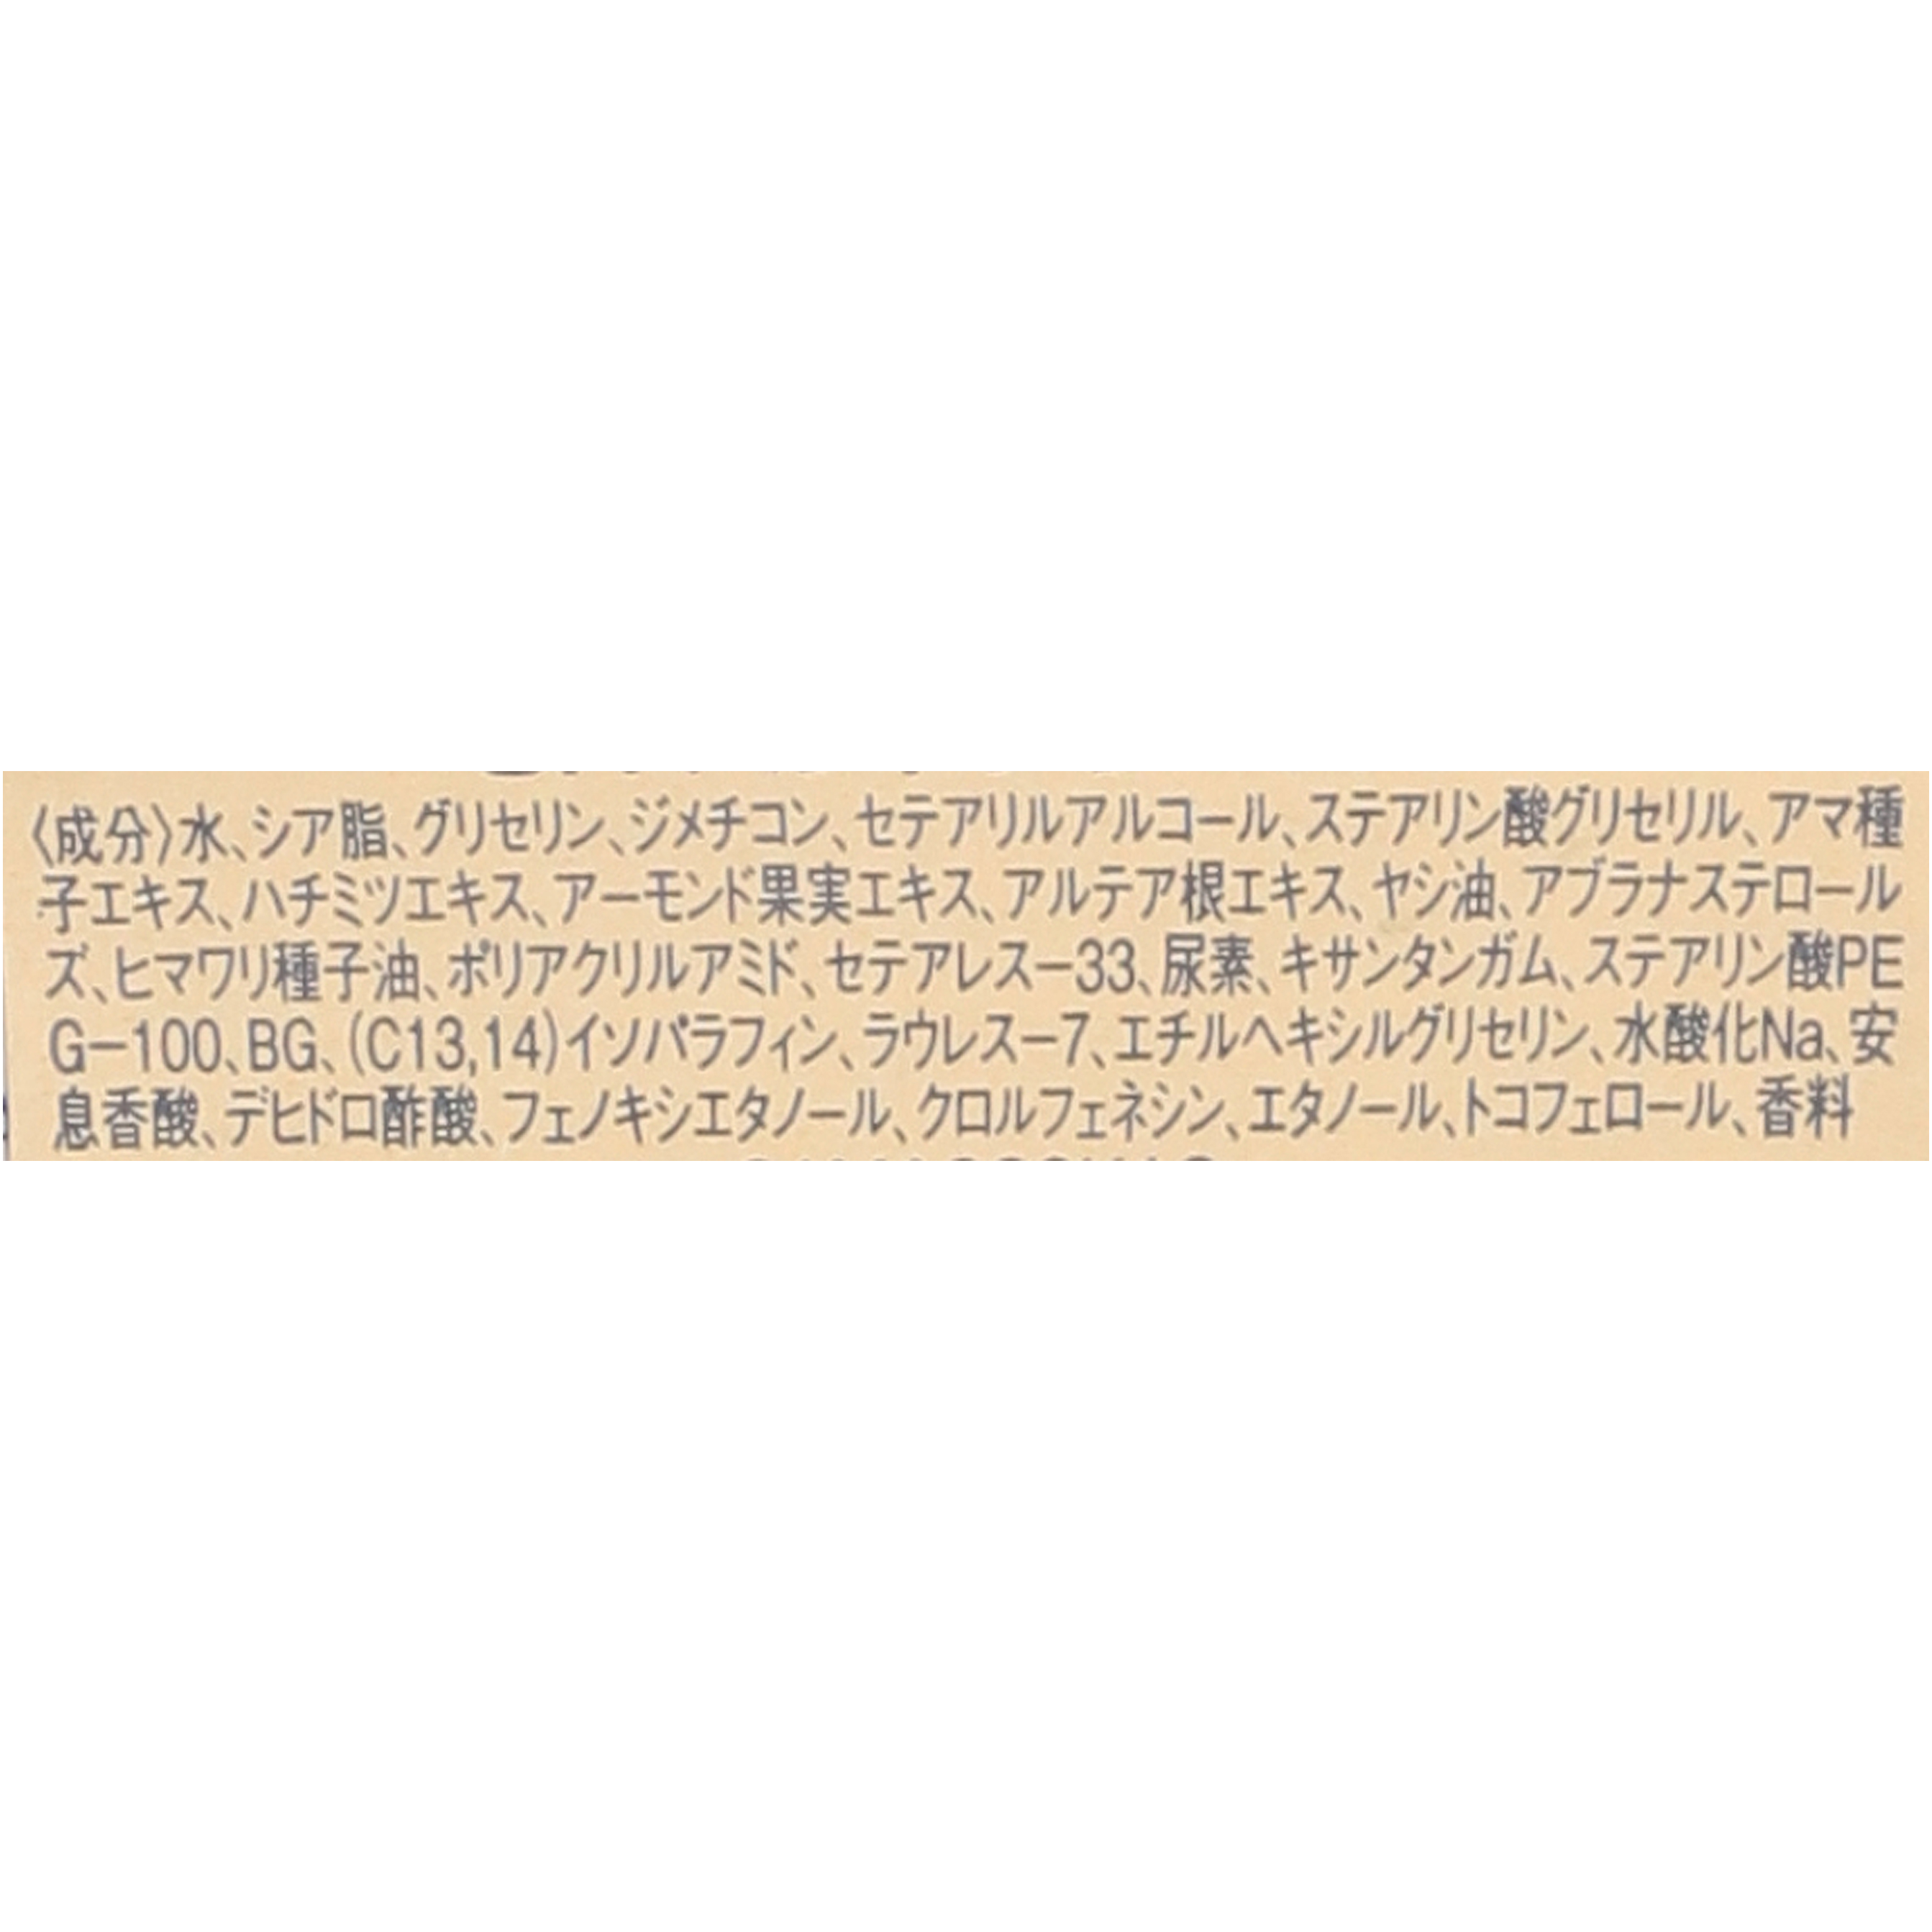 〈成分〉水、シア脂、グリセリン、ジメチコン、セテアリルアルコール、ステアリン酸グリセリル、アマ種
子エキス、ハチミツエキス、アーモンド果実エキス、アルテア根エキス、ヤシ油、アブラナステロール
ズ、ヒマワリ種子油、ポリアクリルアミド、セテアレスー33、尿素、キサンタンガム、ステアリン酸PE
Gー100、BG、(C13,14)イソパラフィン、ラウレスー7、エチルヘキシルグリセリン、水酸化Na、安
息香酸、デヒドロ酢酸、フェノキシエタノール、クロルフェネシン、エタノール、トコフェロール、香料